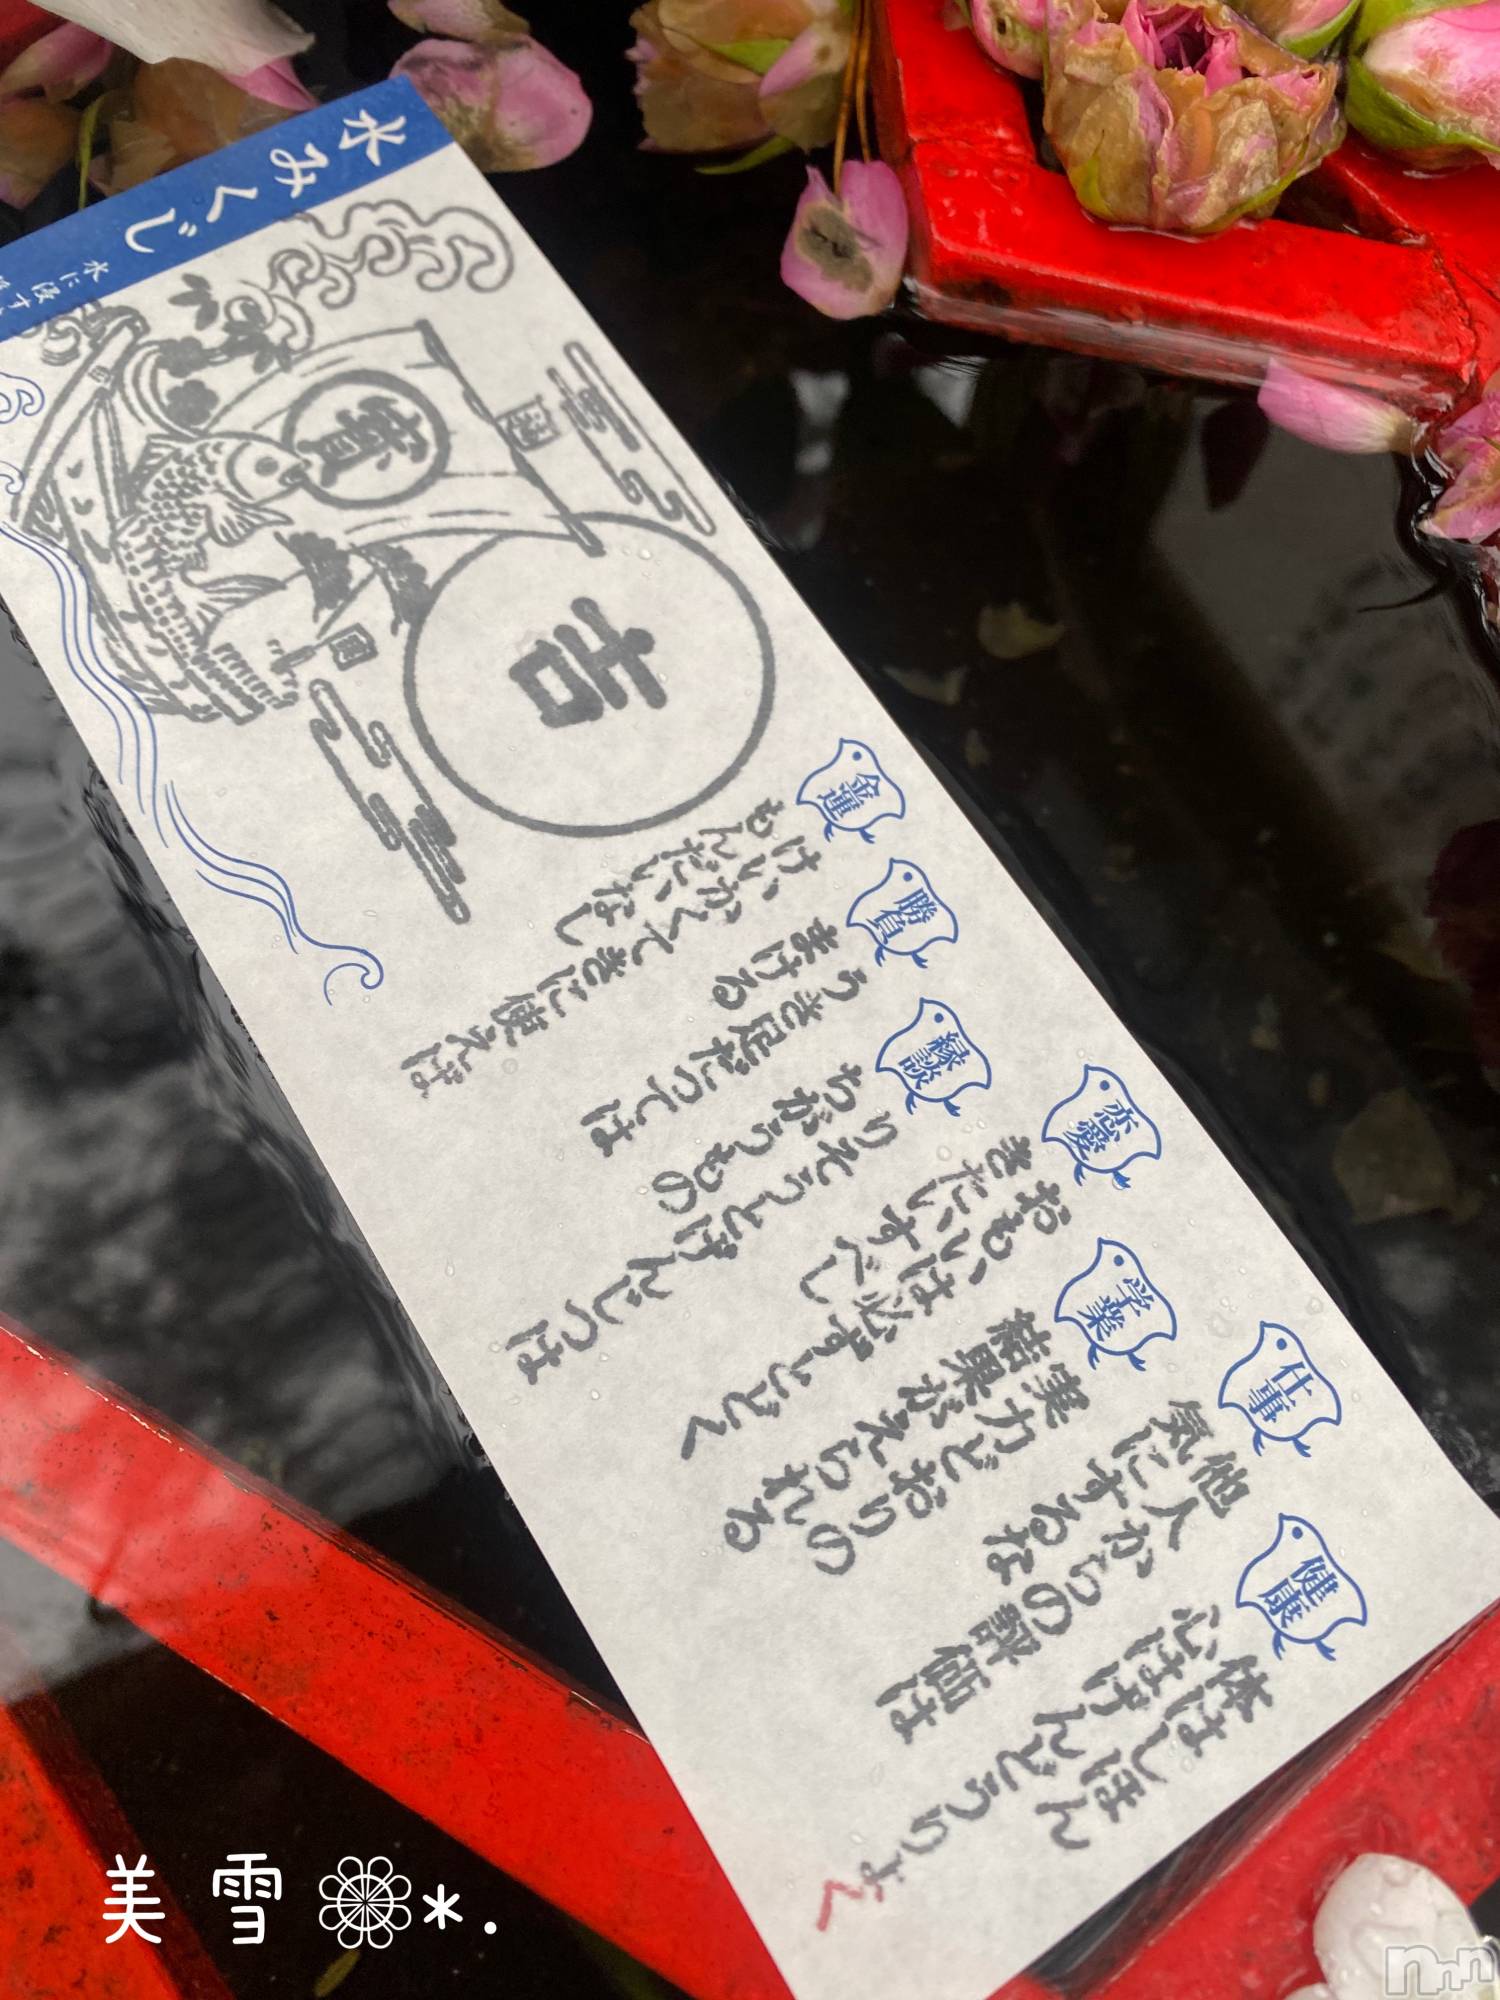 水みくじ
寳
吉
金運
けいかくてきに使えば
もんだいなし
勝負
うき足だっては
まける
縁談
りそうとげんじつは
ちがうもの
恋愛
おもいは必ずとどく
きたいすべし
学業
実力どおりの
結果がえられる
仕事
他人からの評価は
気にするな
健康
体はしほん
心はげんどうりょく
美雪
nnn